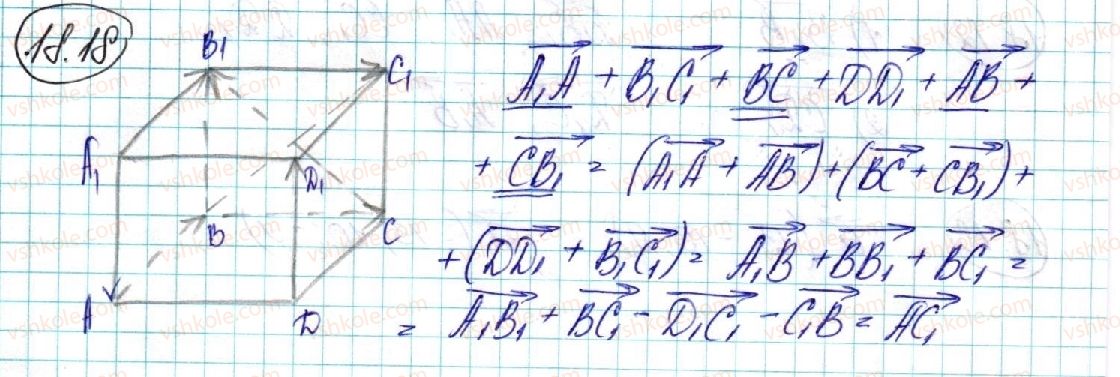 18.18
B₁ C₁
A₁ D₁
B C
A D
A₁A + B₁C₁ + BC + DD₁ + AB +
+ CB₁ = (A₁A + AB) + (BC + CB₁) +
+ (DD₁ + B₁C₁) = A₁B + BB₁ + BC₁ =
= A₁B₁ + BC₁ - D₁C₁ - C₁B = AC₁